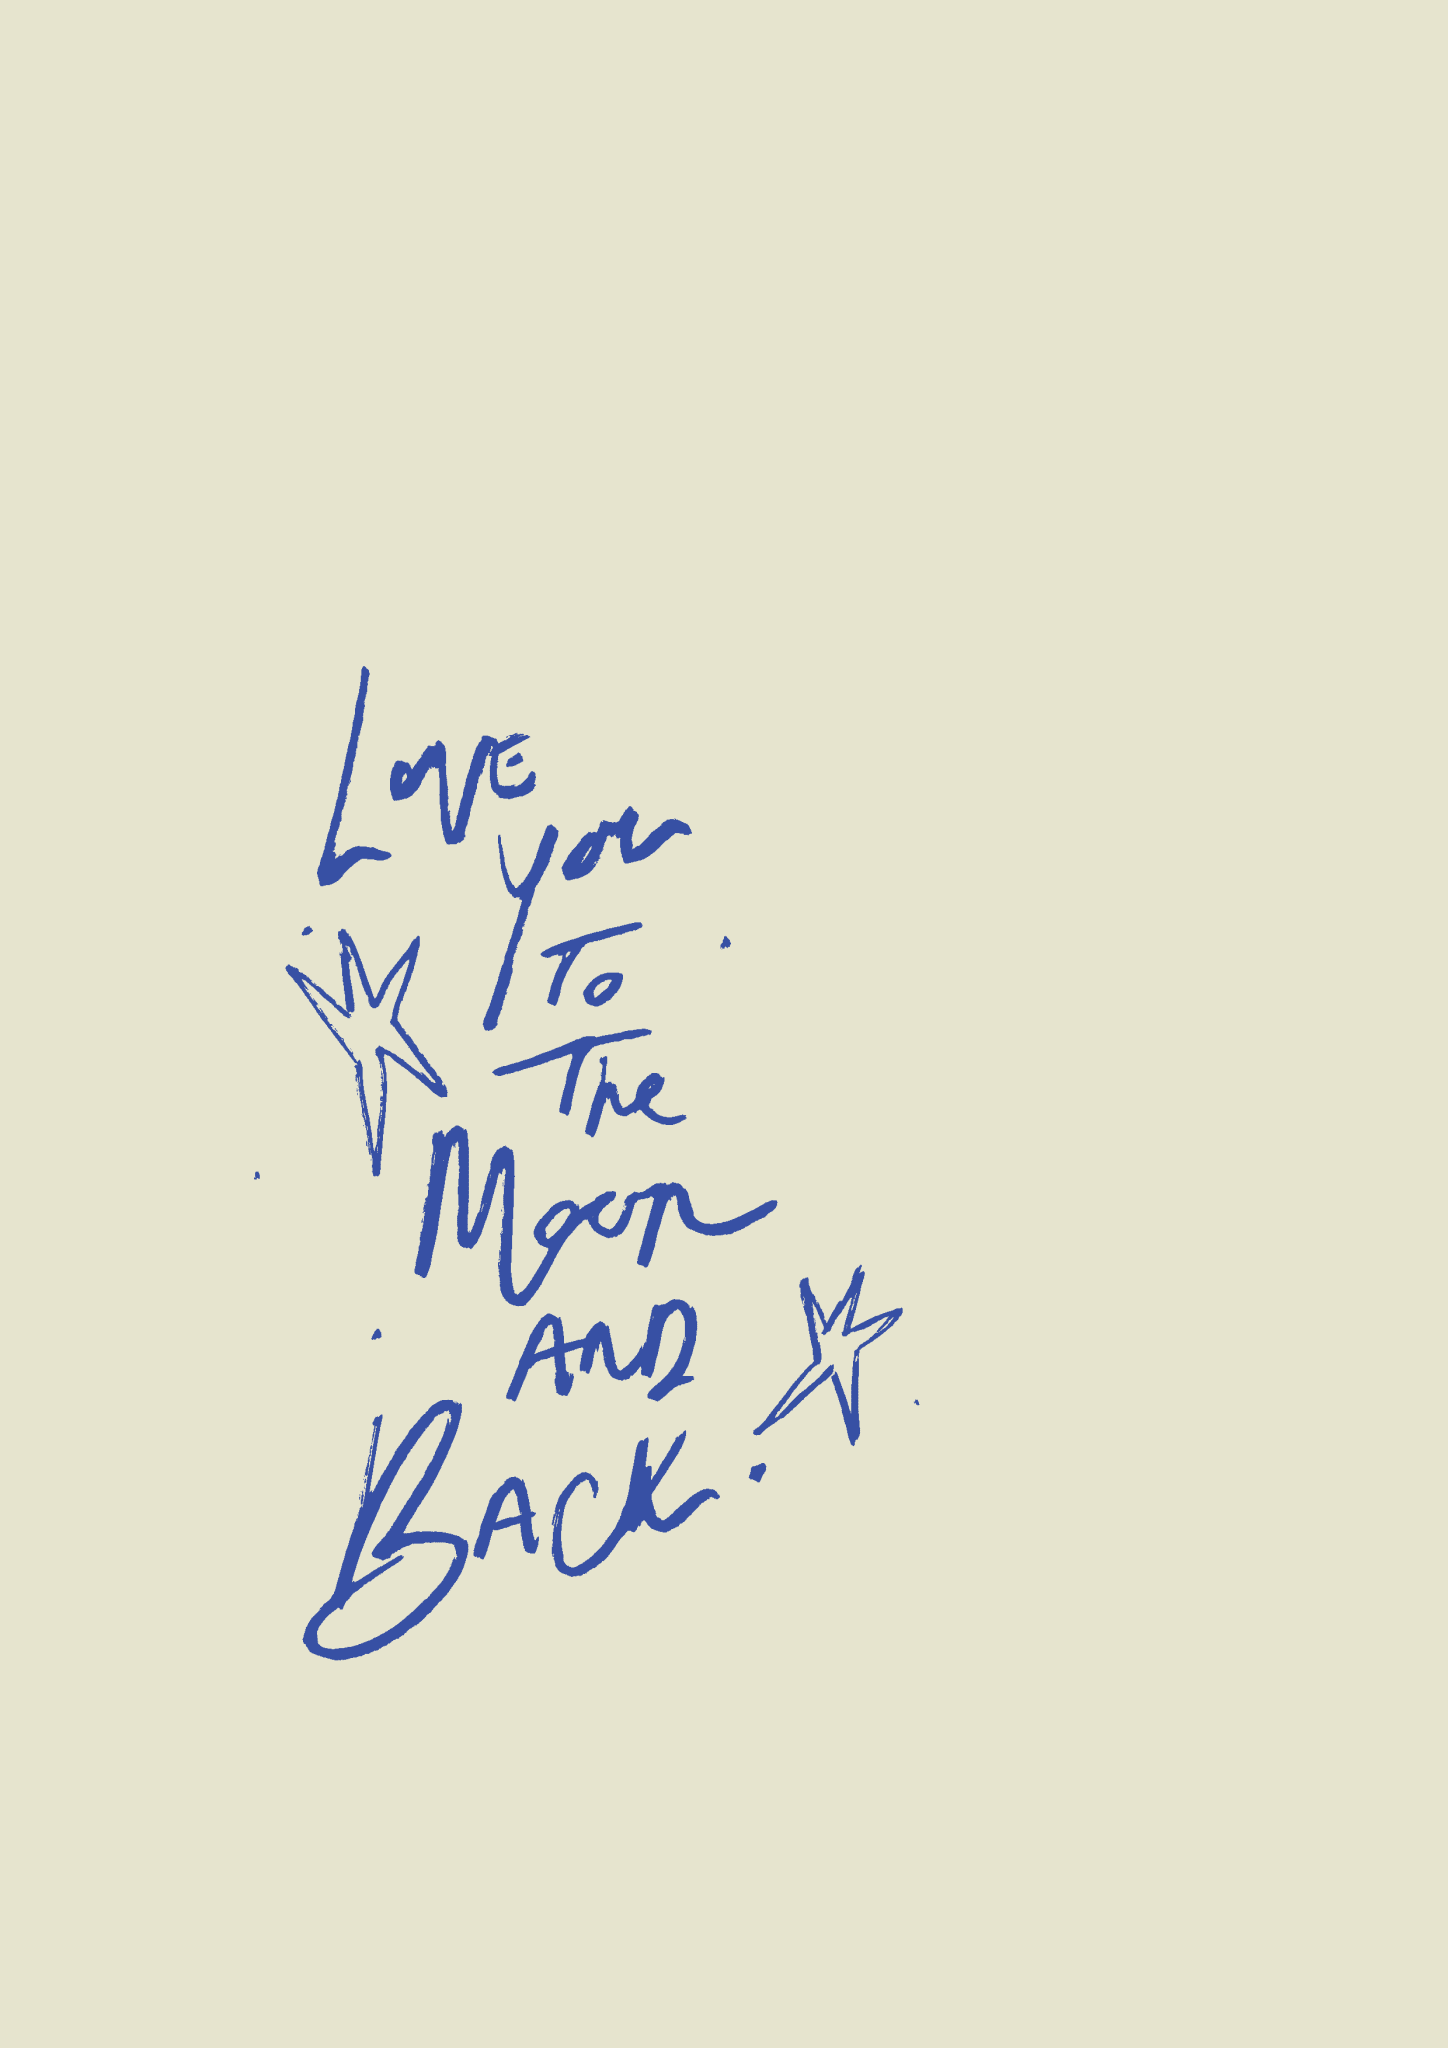 Love
You
To
The
Moon
AND
BACK